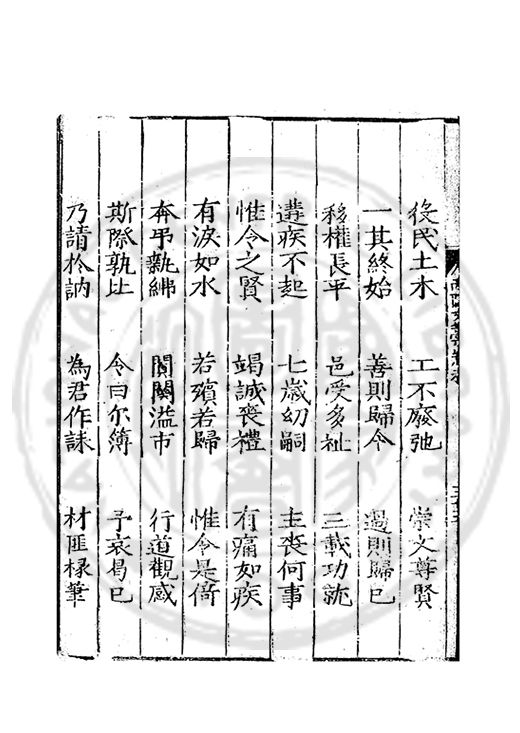 役民土木 工不廢弛 崇文尊賢
一其終始 善則歸令 過則歸已
移權長平 邑受多祉 三載功就
遘疾不起 七歲幼嗣 主喪何事
惟令之賢 竭誠喪禮 有痛如疾
有淚如水 若殯若歸 惟令是倚
奔弔執紼 闤闠溢市 行道觀感
斯際孰比 令曰尔簿 予哀曷已
乃請於訥 為君作誄 材匪椽筆